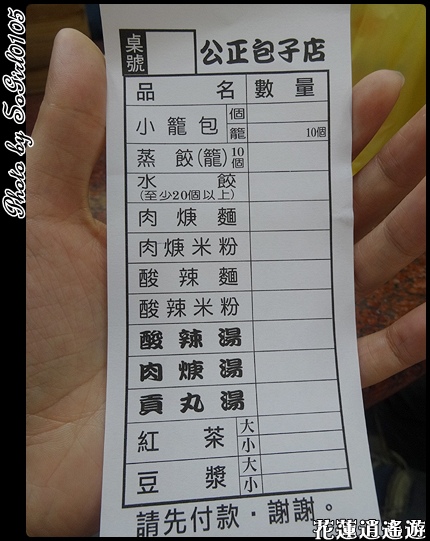 Photo by SoGirl0105
桌號 公正包子店
品名 數量
小籠包 個
籠 10個
蒸餃(籠)10個
水餃
(至少20個以上)
肉焿麵
肉焿米粉
酸辣麵
酸辣米粉
酸辣湯
肉焿湯
貢丸湯
紅茶 大
小
豆漿 大
小
請先付款，謝謝。
花蓮逍遙遊